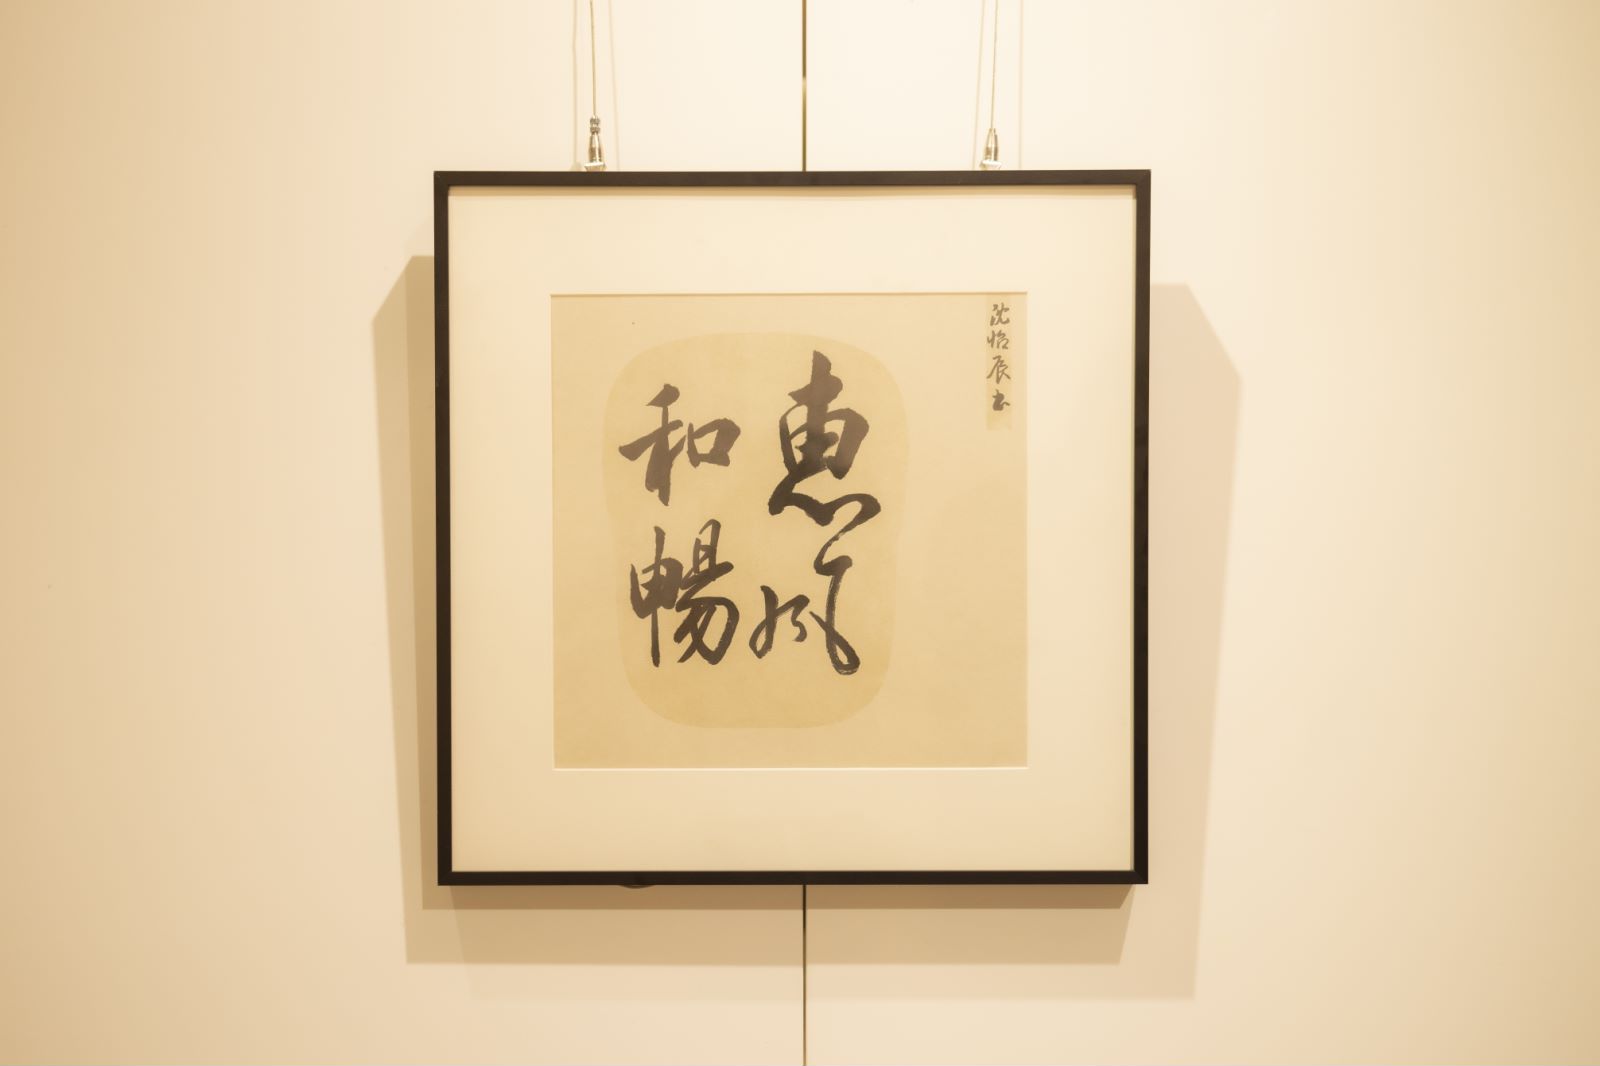 沈怡辰书
惠风
和畅